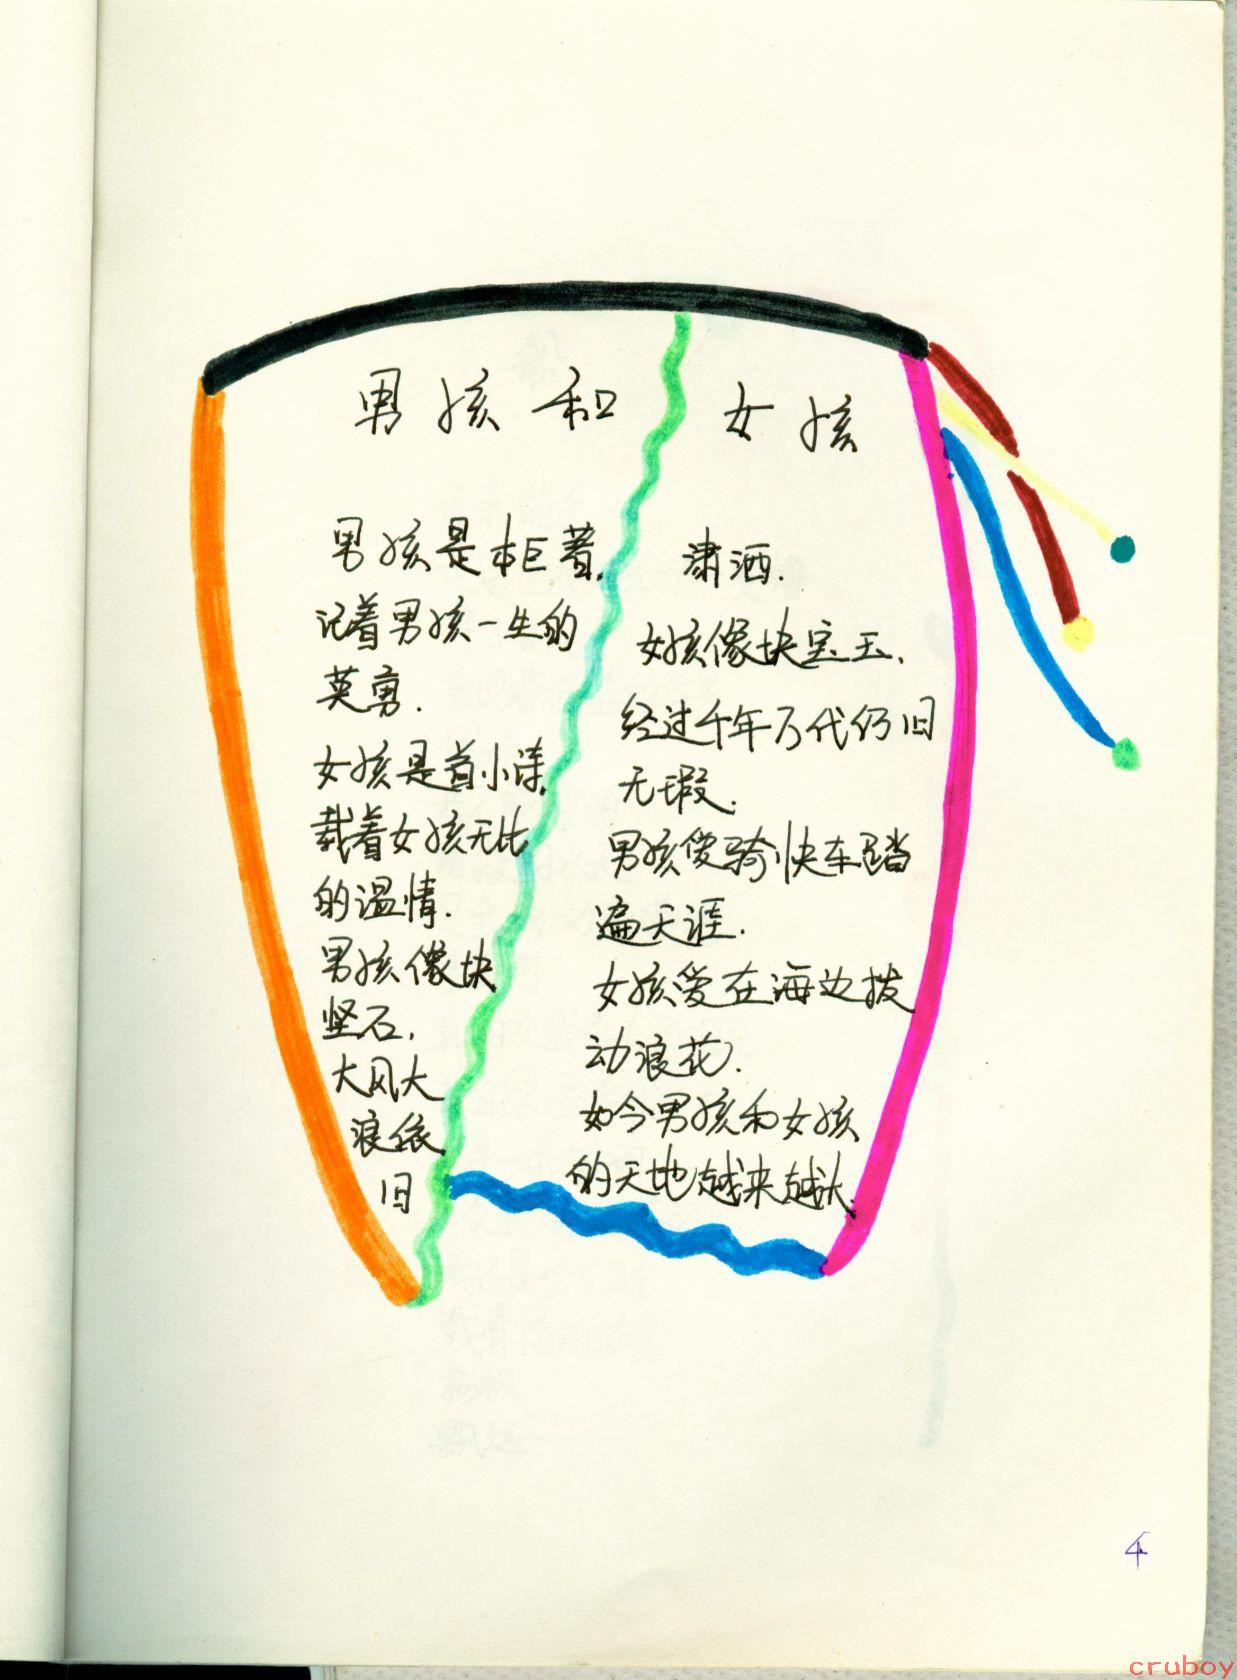 男孩和女孩
男孩是本巨著,
记着男孩一生的
英勇.
女孩是首小诗,
载着女孩无比
的温情.
男孩像块
坚石,
大风大
浪依
旧
潇洒.
女孩像块宝玉,
经过千年万代仍旧
无瑕.
男孩爱骑快车踏
遍天涯.
女孩爱在海边拨
动浪花.
如今男孩和女孩
的天地越来越大.
4
cruboy